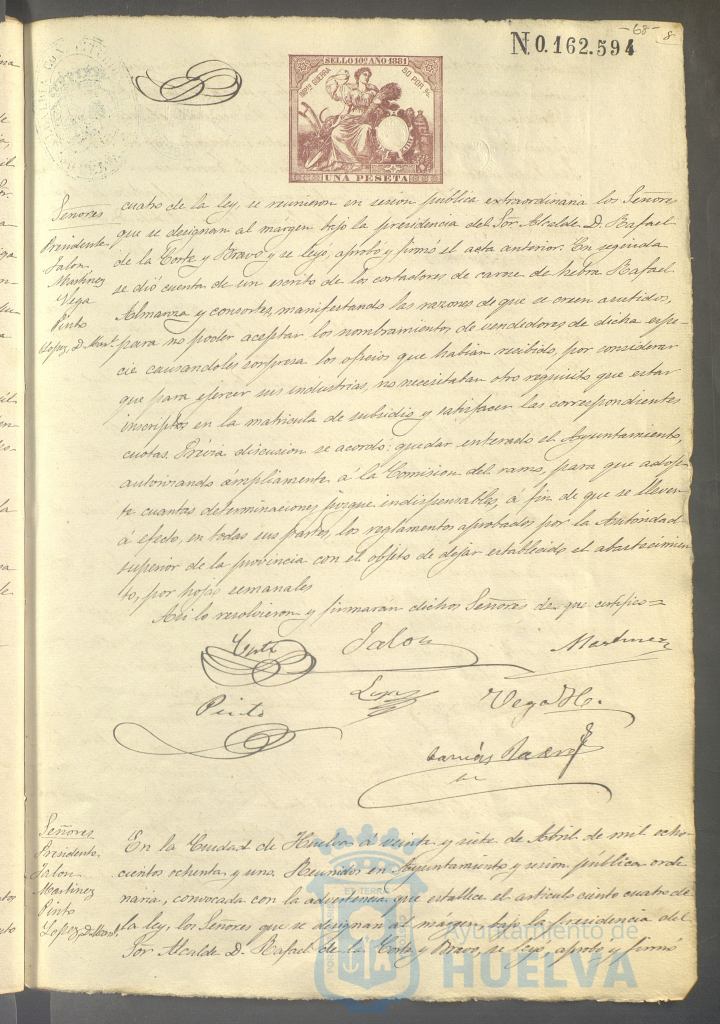 -68-
8
N.0.162.594
SELLO 10º AÑO 1881
IMPTO GUERRA
50 POR %
UNA PESETA
Señores
Presidente
Jalon
Martinez
Vega
Pinto
Lopez, D. Man.l
cuatro de la ley, se reunieron en sesion pública extraordinaria los Señores
que se designan al márgen bajo la presidencia del Sor Alcalde D. Rafael
de la Corte y Bravo y se leyó, aprobó y firmó el acta anterior. En seguida
se dió cuenta de un escrito de los cortadores de carne de hebra Rafael
Almanza y consortes, manifestando las razones de que se creen asistidos,
para no poder aceptar los nombramientos de vendedores de dicha espe-
cie causandoles sorpresa los oficios que habian recibido, por considerar
que para ejercer sus industrias, no necesitaban otro requisito que estar
inscriptos en la matricula de subsidio y satisfacer las correspondientes
cuotas. Prévia discusion se acordó: quedar enterado el Ayuntamiento,
autorizando ámpliamente á la Comision del ramo, para que adop-
te cuantas determinaciones juzgue indispensables, á fin de que se lleven
á efecto, en todas sus partes, los reglamentos aprobados por la Autoridad
superior de la provincia con el objeto de dejar establecido el abastecimien
to, por hojas semanales
Asi lo resolvieron y firmarán dichos Señores de que certifico=
Corte
Jalon
Martinez
Pinto
Lopez
Vega H.
Señores
Presidente
Jalon
Martinez
Pinto
Lopez D. Man.l
En la Ciudad de Huelva á veinte y siete de Abril de mil ocho-
cientos ochenta y uno. Reunidos en Ayuntamiento y sesion pública ordi
naria, convocada con la advertencia que establece el articulo ciento cuatro de
la ley, los Señores que se designan al márgen bajo la presidencia del
Sor Alcalde D. Rafael de la Corte y Bravo, se leyó, aprobó y firmó
Ayuntamiento de
HUELVA